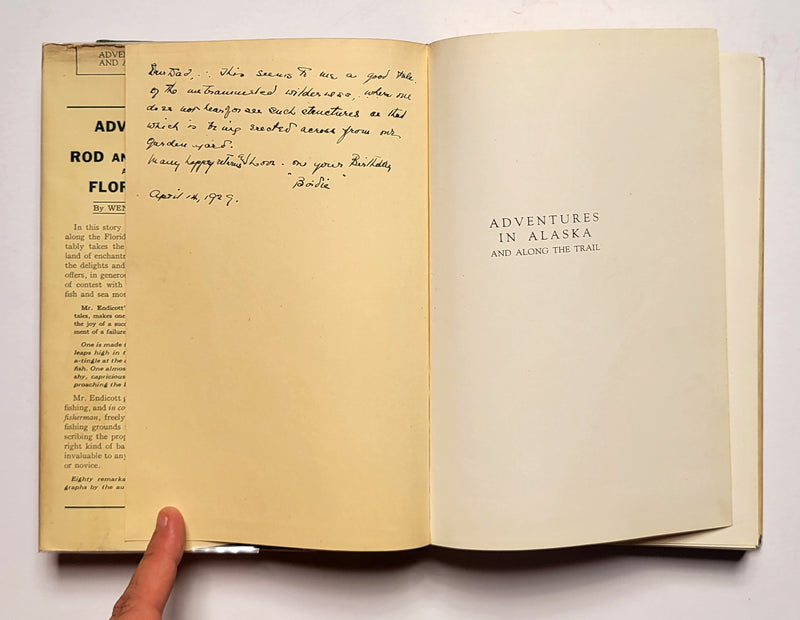 ADVE
AND A
ADV
ROD AN
A
FLOR
By WEN
In this story
along the Florid
tably takes the
land of enchant
the delights and
offers, in genero
of contest with
fish and sea mo
Mr. Endicott'
tales, makes one
the joy of a suc
ment of a failure
One is made t
leaps high in t
a-tingle at the
fish. One almos
shy, capricious
proaching the l
Mr. Endicott g
fishing, and in co
fisherman, freely
fishing grounds
scribing the prop
right kind of ba
invaluable to any
or novice.
Eighty remarka
graphs by the au
Dear Dad, . . This seems to me a good tale
of the untrammeled wilderness, where one
does not hear, for see such structures as that
which is being erected across from our
garden yard.
Many happy returns & Love. on your Birthday
"Birdie"
April 14, 1929.
ADVENTURES
IN ALASKA
AND ALONG THE TRAIL